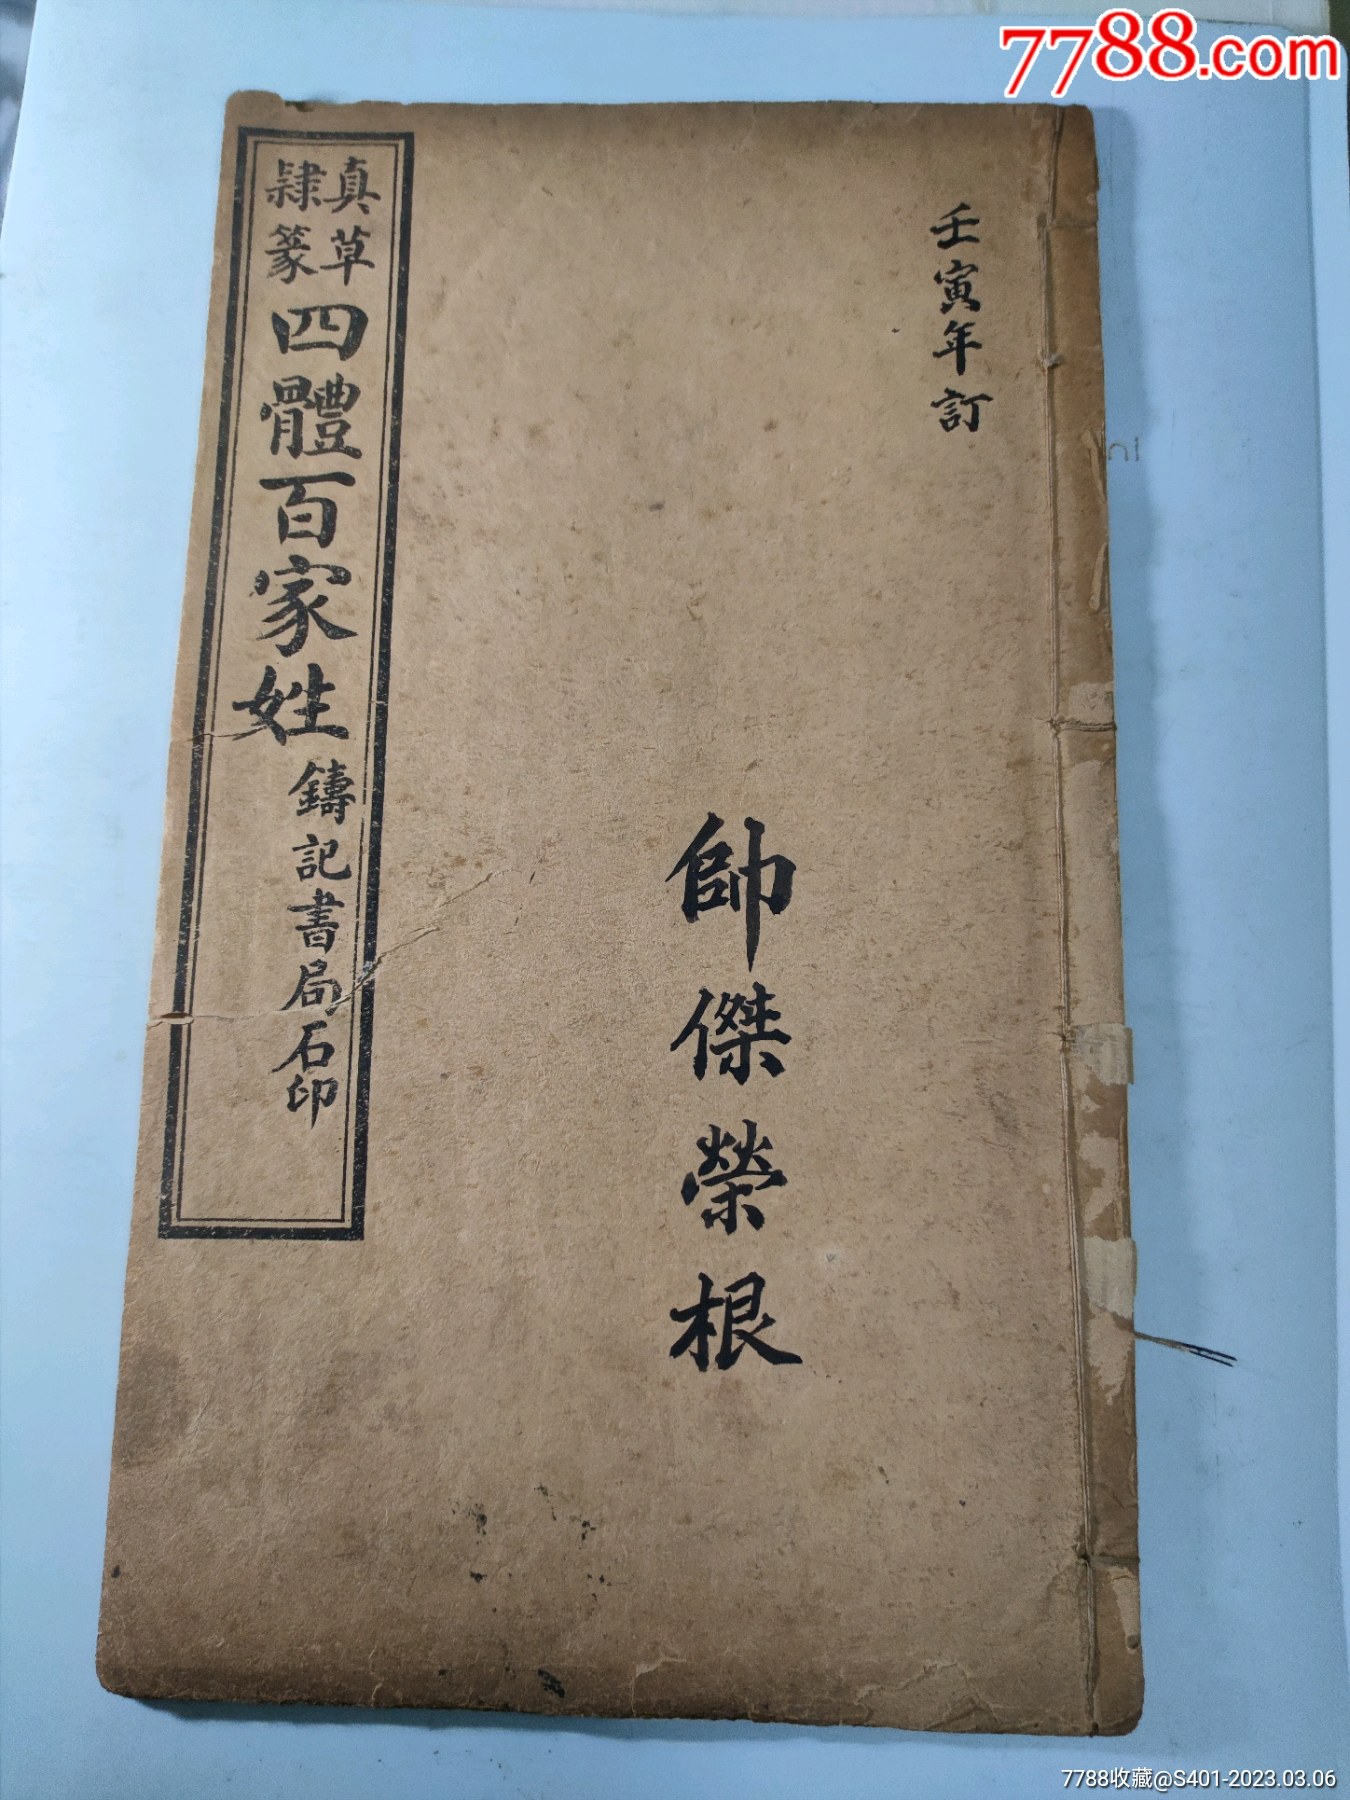 7788.com
壬寅年訂
帥傑榮根
真草
隸篆
四體百家姓
鑄記書局石印
ni
7788收藏@S401-2023.03.06